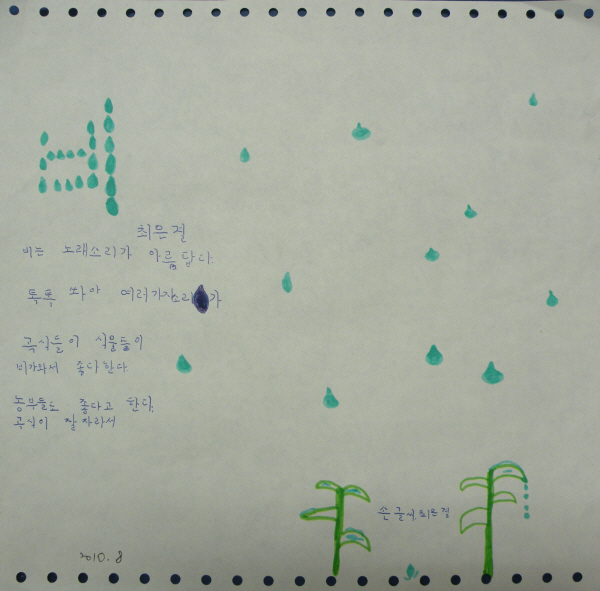 비
최은결
비는 노래소리가 아름답다.
톡톡 쏴아 여러가지소리가
곡식들이 식물들이
비가와서 좋다한다
농부들도 좋다고 한다.
곡식이 잘 자라서
손글씨. 최은결
2010. 8